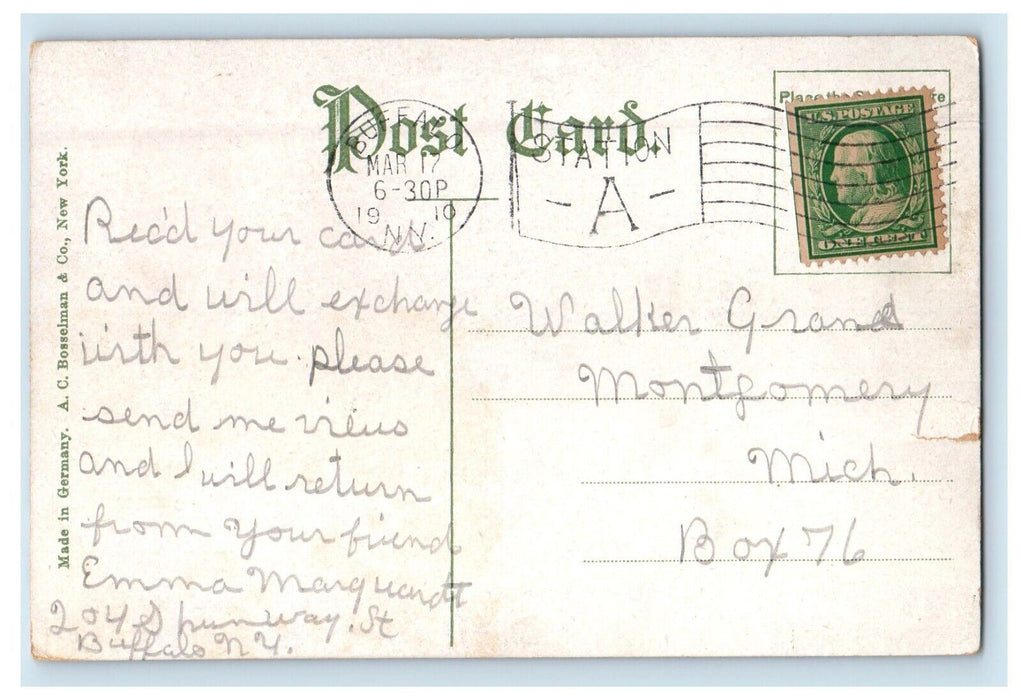 Post Card.
Place the S re
U.S. POSTAGE
ONE CENT
BUFFALO
MAR 17
6-30P
19 10
N.Y.
STATION
- A -
Made in Germany. A. C. Bosselman & Co., New York.
Rec'd your cards
and will exchange
with you. please
send me views
and I will return
from your friend
Emma Marquardt
204 Shumway. St
Buffalo N.Y.
Walker Grand
Montgomery
Mich.
Box 76